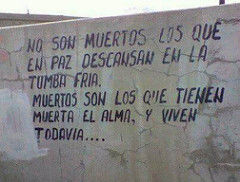 NO SON MUERTOS LOS QUE
EN PAZ DESCANSAN EN LA
TUMBA FRIA.
MUERTOS SON LOS QUE TIENEN
MUERTA EL ALMA, Y VIVEN
TODAVIA....